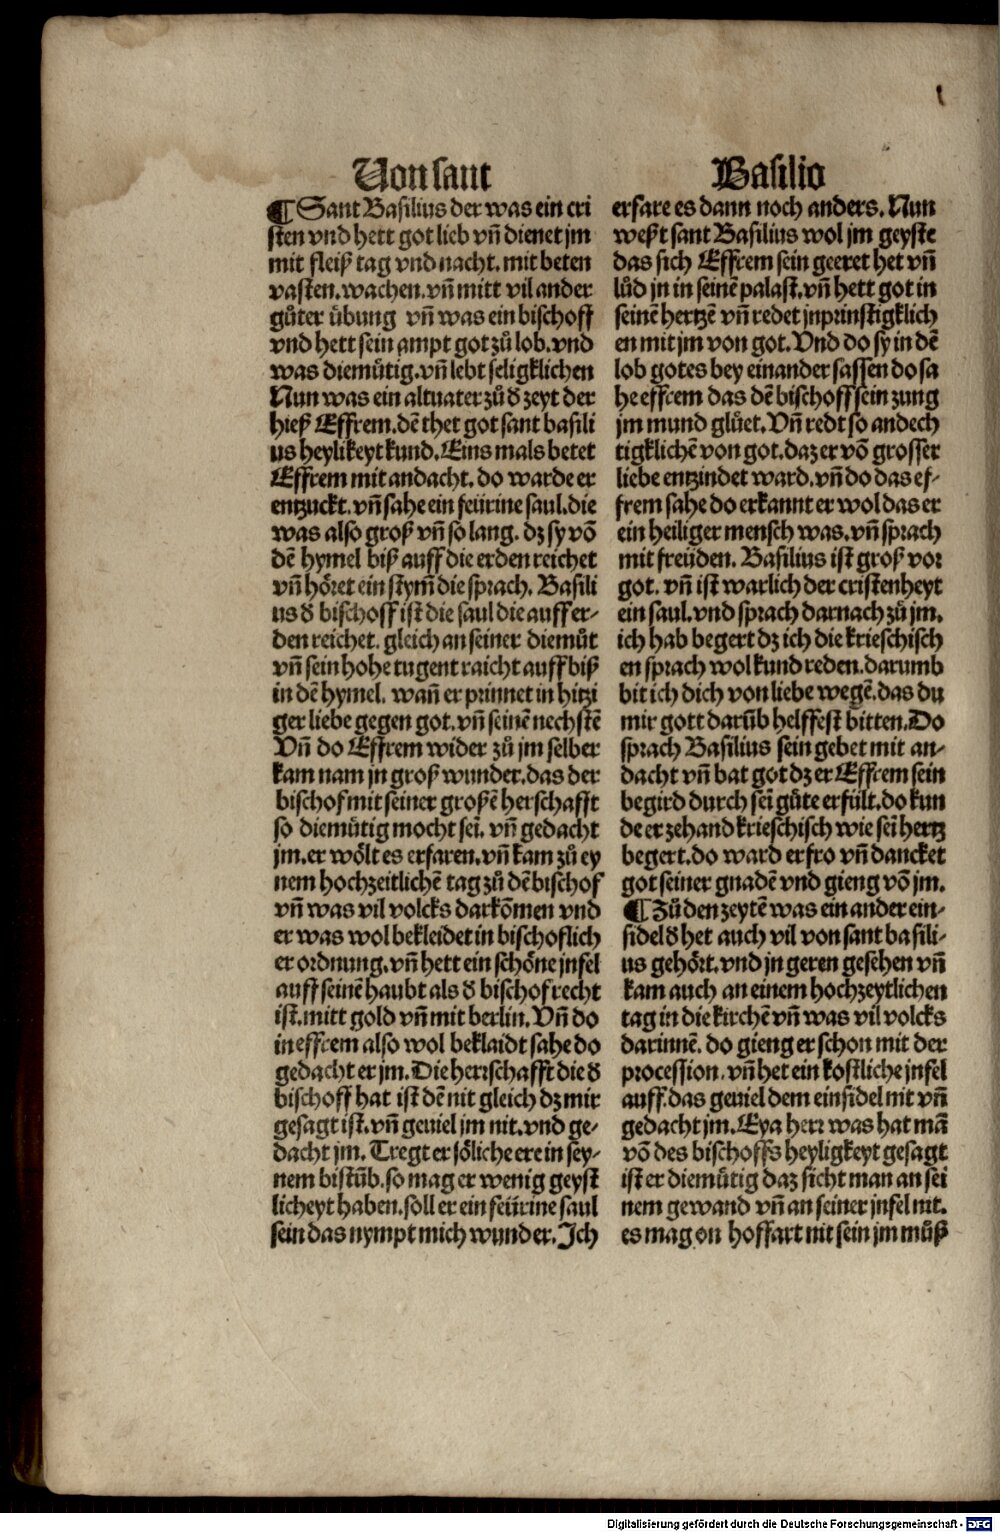 Von sant Basilio
¶ Sant Basilius der was ein cri
sten vnd hett got lieb vñ dienet jm
mit fleiß tag vnd nacht. mit beten
vasten. wachen. vñ mitt vil ander
gůter übung vñ was ein bischoff
vnd hett sein ampt got zů lob. vnd
was diemůtig. vñ lebt seligklichen
Nun was ein altuater zů đ zeyt der
hieß Effrem. dē thet got sant basili
us heylikeyt kund. Eins mals betet
Effrem mit andacht. do warde er
entzuckt. vñ sahe ein feürine saul. die
was also groß vñ so lang. dz sy vō
dē hymel biß auff die erden reichet
vñ höret ein stym̄ die sprach. Basili
us đ bischoff ist die saul die auff er-
den reichet. gleich an seiner diemůt
vñ sein hohe tugent raicht auff biß
in dē hymel. wañ er prinnet in hitzi
ger liebe gegen got. vñ seinē nechstē
Vñ do Effrem wider zů jm selber
kam nam jn groß wunder. das der
bischof mit seiner großē herschafft
so diemůtig mocht seī. vñ gedacht
jm. er wölt es erfaren. vñ kam zů ey
nem hochzeitlichē tag zů dē bischof
vñ was vil volcks dar kōmen vnd
er was wol bekleidet in bischoflich
er ordnung. vñ hett ein schöne jnfel
auff seinē haubt als đ bischof recht
ist. mitt gold vñ mit berlin. Vñ do
in effrem also wol beklaidt sahe do
gedacht er jm. Die herrschafft die đ
bischoff hat ist dē nit gleich dz mir
gesagt ist. vñ geuiel jm nit. vnd ge-
dacht jm. Tregt er söliche ere in sey-
nem bistūb. so mag er wenig geyst
licheyt haben. soll er ein feürine saul
sein das nympt mich wunder. Ich
erfare es dann noch anders. Nun
weßt sant Basilius wol jm geyste
das sich Effrem sein geeret het vñ
lůd jn in seinē palast. vñ hett got in
seinē hertzē vñ redet jnprinstigklich
en mit jm von got. Vnd do sy in dē
lob gotes bey einander sassen do sa
he effrem das dē bischoff sein zung
jm mund glůet. Vñ redt so andech
tigklichē von got. daz er vō grosser
liebe entzindet ward. vñ do das ef-
frem sahe do erkannt er wol das er
ein heiliger mensch was. vñ sprach
mit freüden. Basilius ist groß vor
got. vñ ist warlich der cristenheyt
ein saul. vnd sprach darnach zů jm.
ich hab begert dz ich die krieschisch
en sprach wol kund reden. darumb
bit ich dich von liebe wegē. das du
mir gott darūb helffest bitten. Do
sprach Basilius sein gebet mit an-
dacht vñ bat got dz er Effrem sein
begird durch seī gůte erfült. do kun
de er zehand krieschisch wie seī hertz
begert. do ward er fro vñ dancket
got seiner gnadē vnd gieng vō jm.
¶ Zů den zeytē was ein ander ein-
sidel đ het auch vil von sant basili-
us gehört. vnd jn geren gesehen vñ
kam auch an einem hochzeytlichen
tag in die kirchē vñ was vil volcks
darinnē. do gieng er schon mit der
procession. vñ het ein kostliche jnfel
auff. das geuiel dem einsidel nit vñ
gedacht jm. Eya herr was hat mā
vō des bischoffs heyligkeyt gesagt
ist er diemůtig daz sicht man an sei
nem gewand vñ an seiner jnfel nit.
es mag on hoffart nit sein jm můß
Digitalisierung gefördert durch die Deutsche Forschungsgemeinschaft - DFG